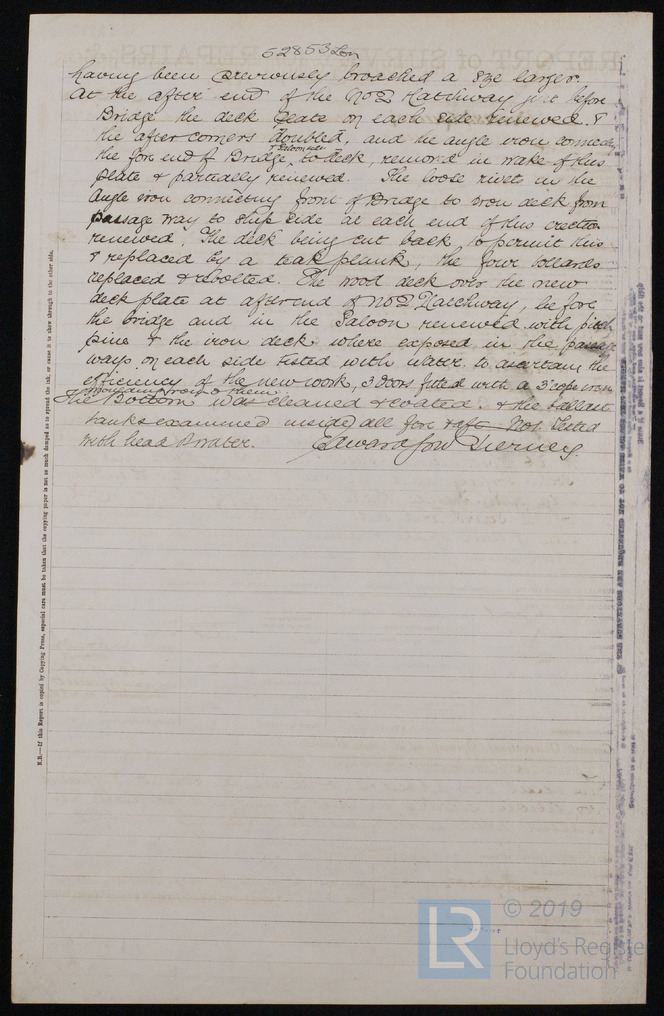 52853 Lon
having been previously broached a size larger.
At the after end of the No 2 Hatchway just before
Bridge the deck plate on each side renewed. &
the after corners doubled, and the angle iron connecting
the fore end of Bridge to deck, removed in wake of this
plate & partially renewed. The loose rivets in the
Angle iron connecting front of Bridge to iron deck from
passage way to ship side at each end of this erection
renewed. The deck being cut back to permit this
& replaced by a teak plank, the four bollards
replaced & bolted. The wood deck over the new
deck plate at after end of No 2 Hatchway, before
the bridge and in the Saloon renewed with pitch
pine & the iron deck where exposed in the passage
ways on each side tested with water to ascertain the
efficiency of the new work, 3 doors fitted with a 3" iron
The Bottom was cleaned & coated. & the ballast
tanks examined inside all fore & aft Not tested
with head of water. Edward Tierney.
N.B.—If this Report is copied by Copying Press, especial care must be taken that the copying paper is not so much damped as to spread the ink, or cause it to show through to the other side.
LR
© 2019
Lloyd's Register
Foundation